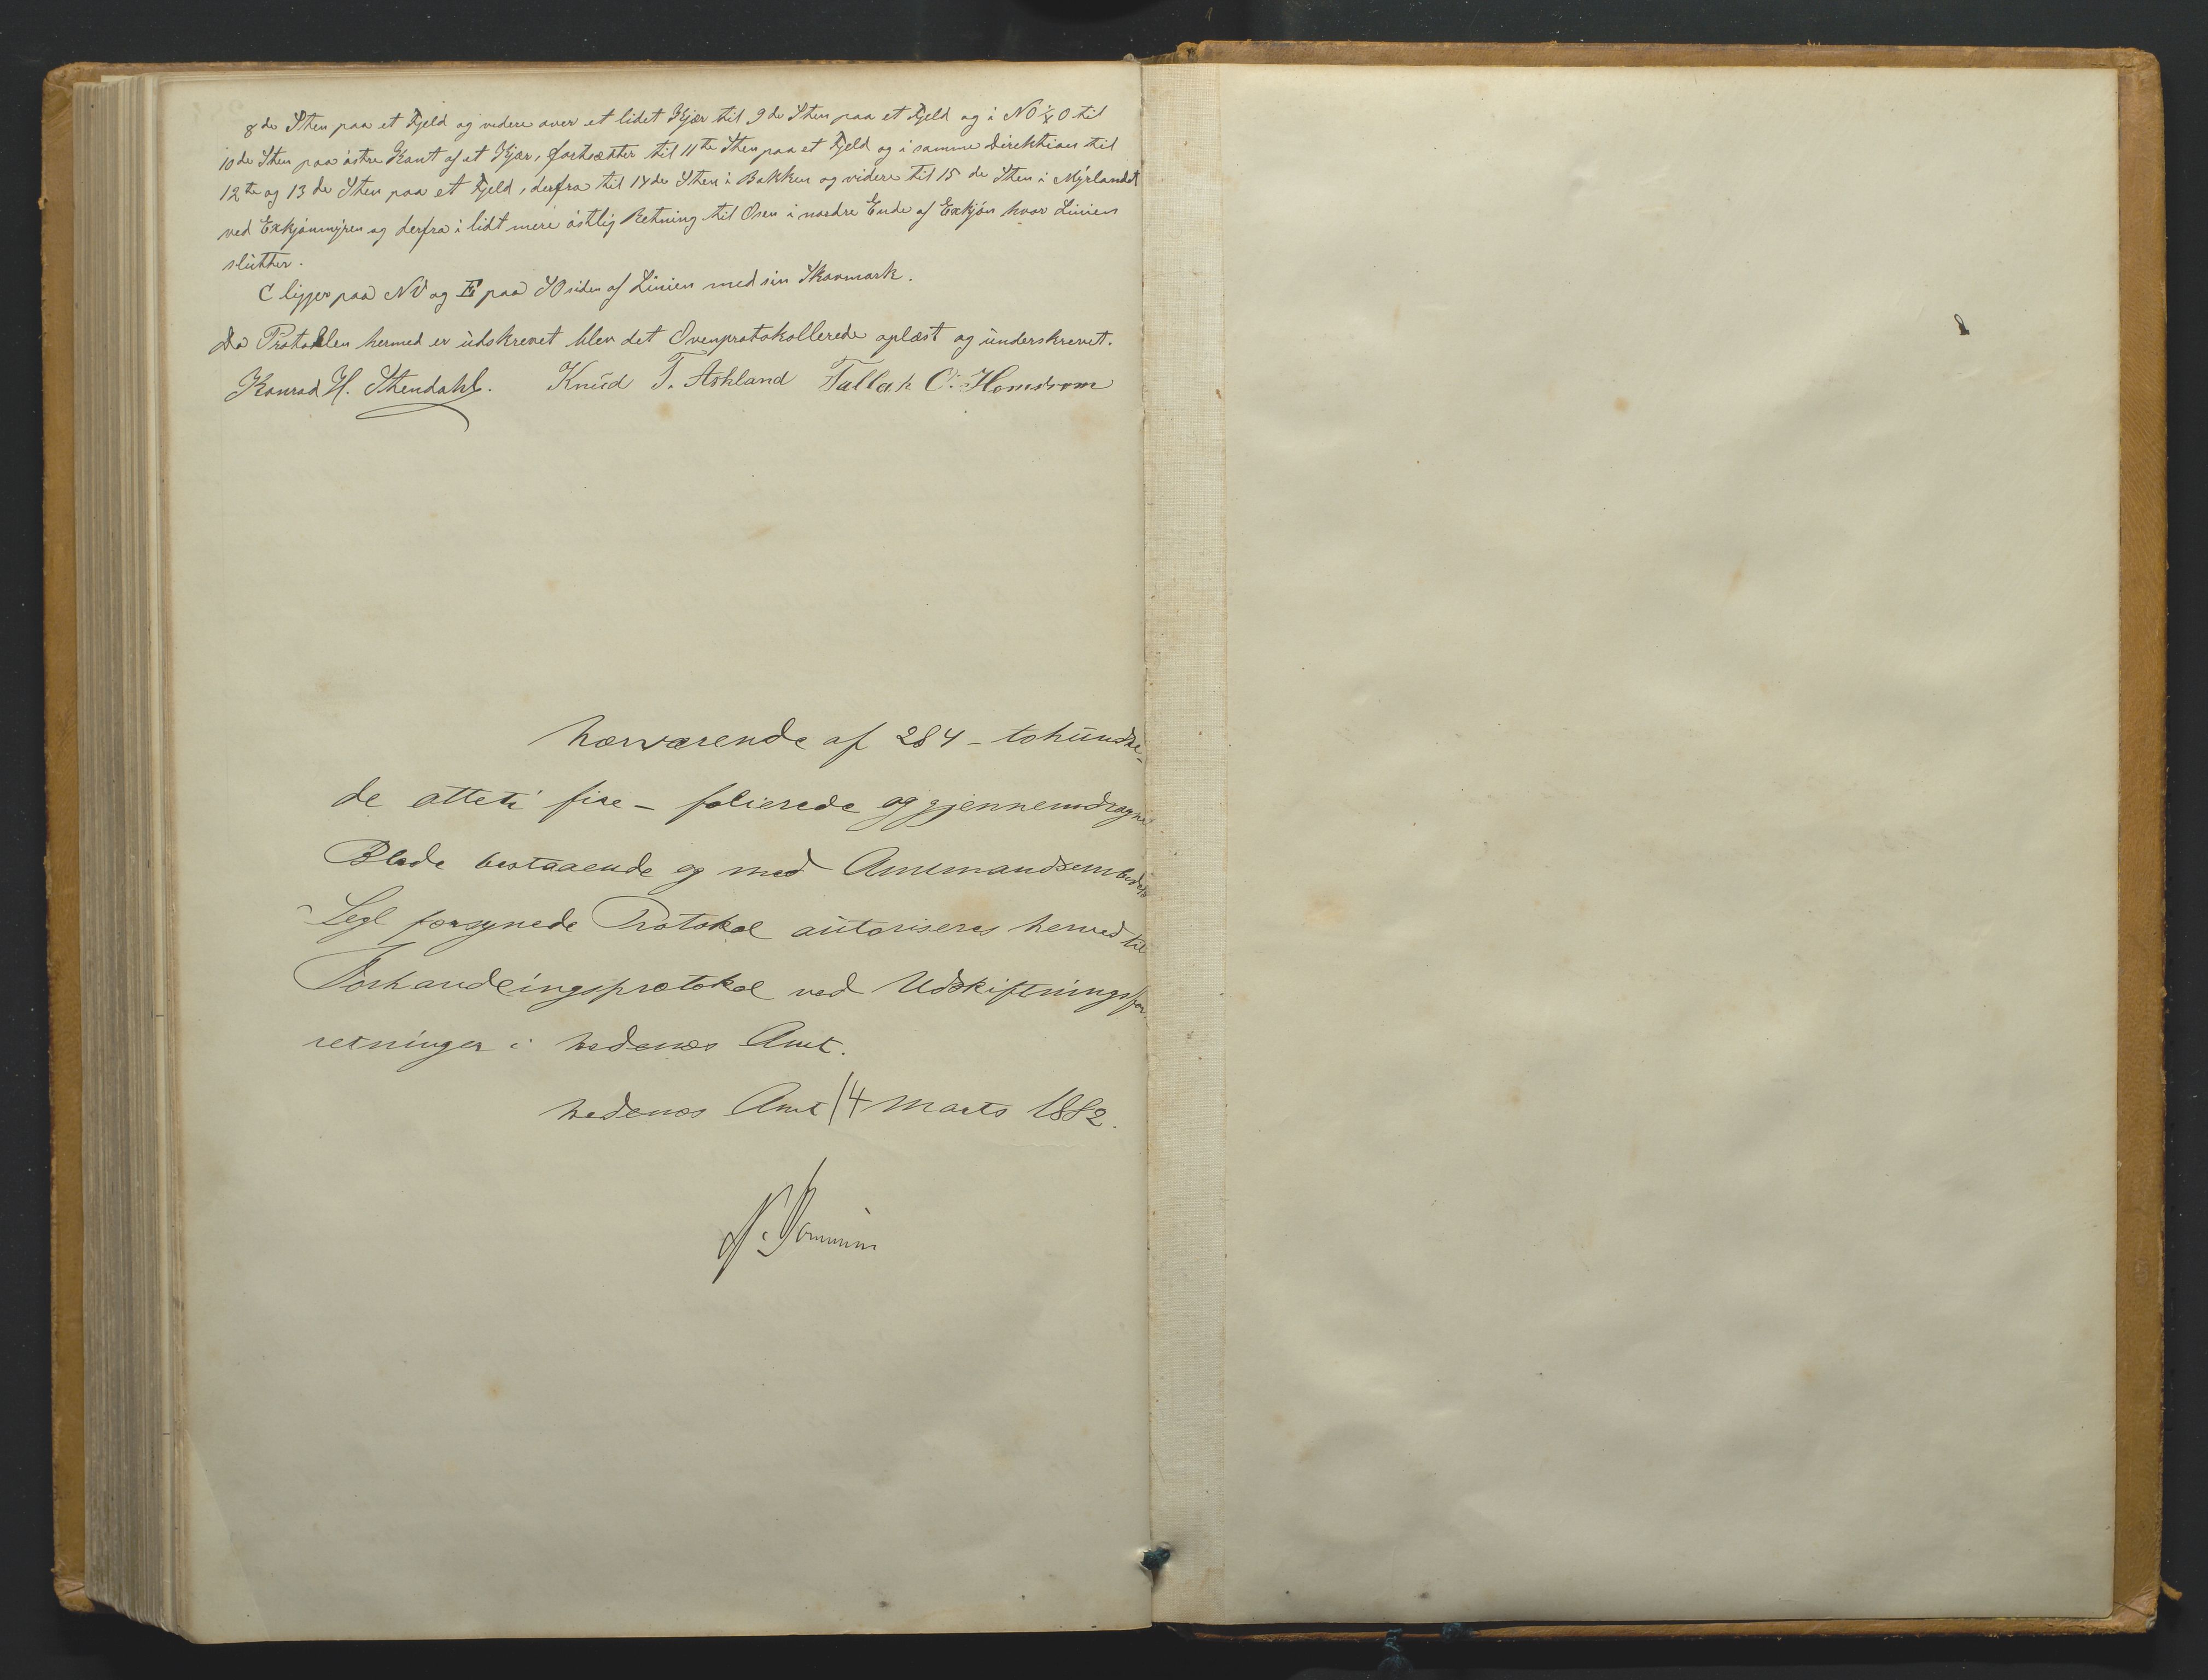 8de Sten paa et Fjeld og videre over et lidet Kjær til 9de Sten paa et Fjeld og i NO t O til
10de Sten paa östre Kant af et Kjær, fortsætter til 11te Sten paa et Fjeld og i samme Direktion til
12te og 13de Sten paa et Fjeld, derfra til 14de Sten i Bakken og videre til 15de Sten i Myrlandet
ved Exkjönmyren og derfra i lidt mere östlig Retning til Osen i nordre Ende af Exkjön hvor Linien
slutter.
C ligger paa NV og E paa SO siden af Linien med sin Skovmark.
Da Protokollen hermed er udskrevet blev det Ovenprotokollerede oplæst og underskrevet.
Konrad H. Stendahl. Knud T. Askland Tallak O. Homdrom
Nærværende af 284 - tohundre-
de otteti fire - folierede og gjennemdragne
Blade bestaaende og med Amtmandsembedets
Segl forsynede Protokol autoriseres herved til
Forhandlingsprotokol ved Udskiftningsfor-
retninger i Nedenæs Amt.
Nedenæs Amt 14 Marts 1882.